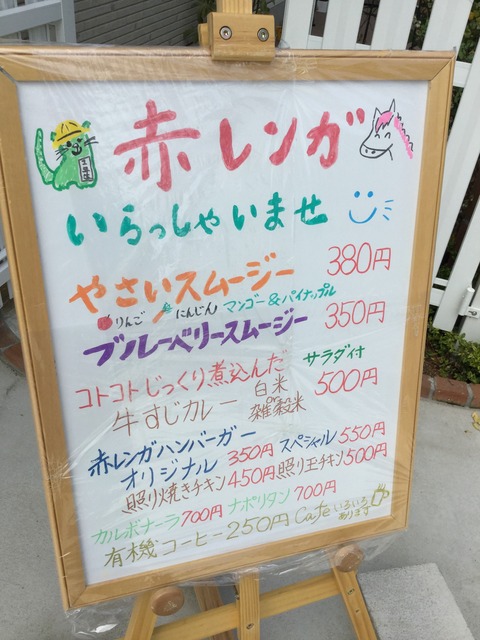 赤レンガ
いらっしゃいませ
やさいスムージー 380円
りんご にんじん マンゴー&パイナップル
ブルーベリースムージー 350円
コトコトじっくり煮込んだ サラダ付
牛すじカレー 白米 雑穀米 500円
赤レンガハンバーガー
オリジナル 350円 スペシャル 550円
照り焼きチキン 450円 照り玉チキン 500円
カルボナーラ 700円 ナポリタン 700円
有機コーヒー 250円 Cafe いろいろあります